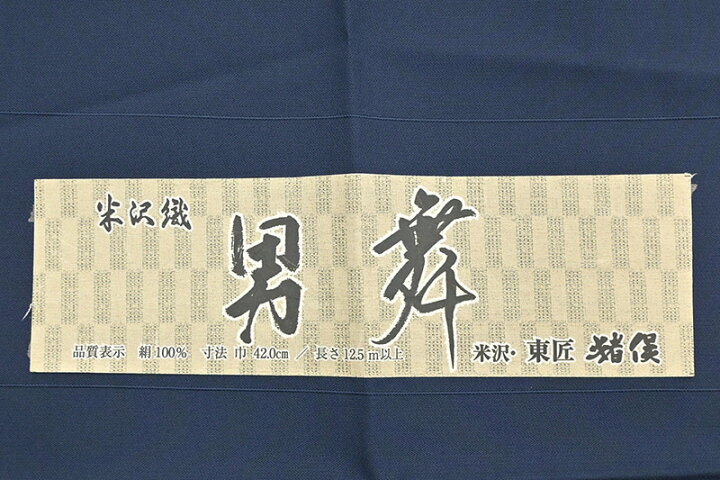 米沢織
男舞
品質表示 絹100% 寸法 巾 42.0cm / 長さ 12.5m以上
米沢・東匠 猪俣